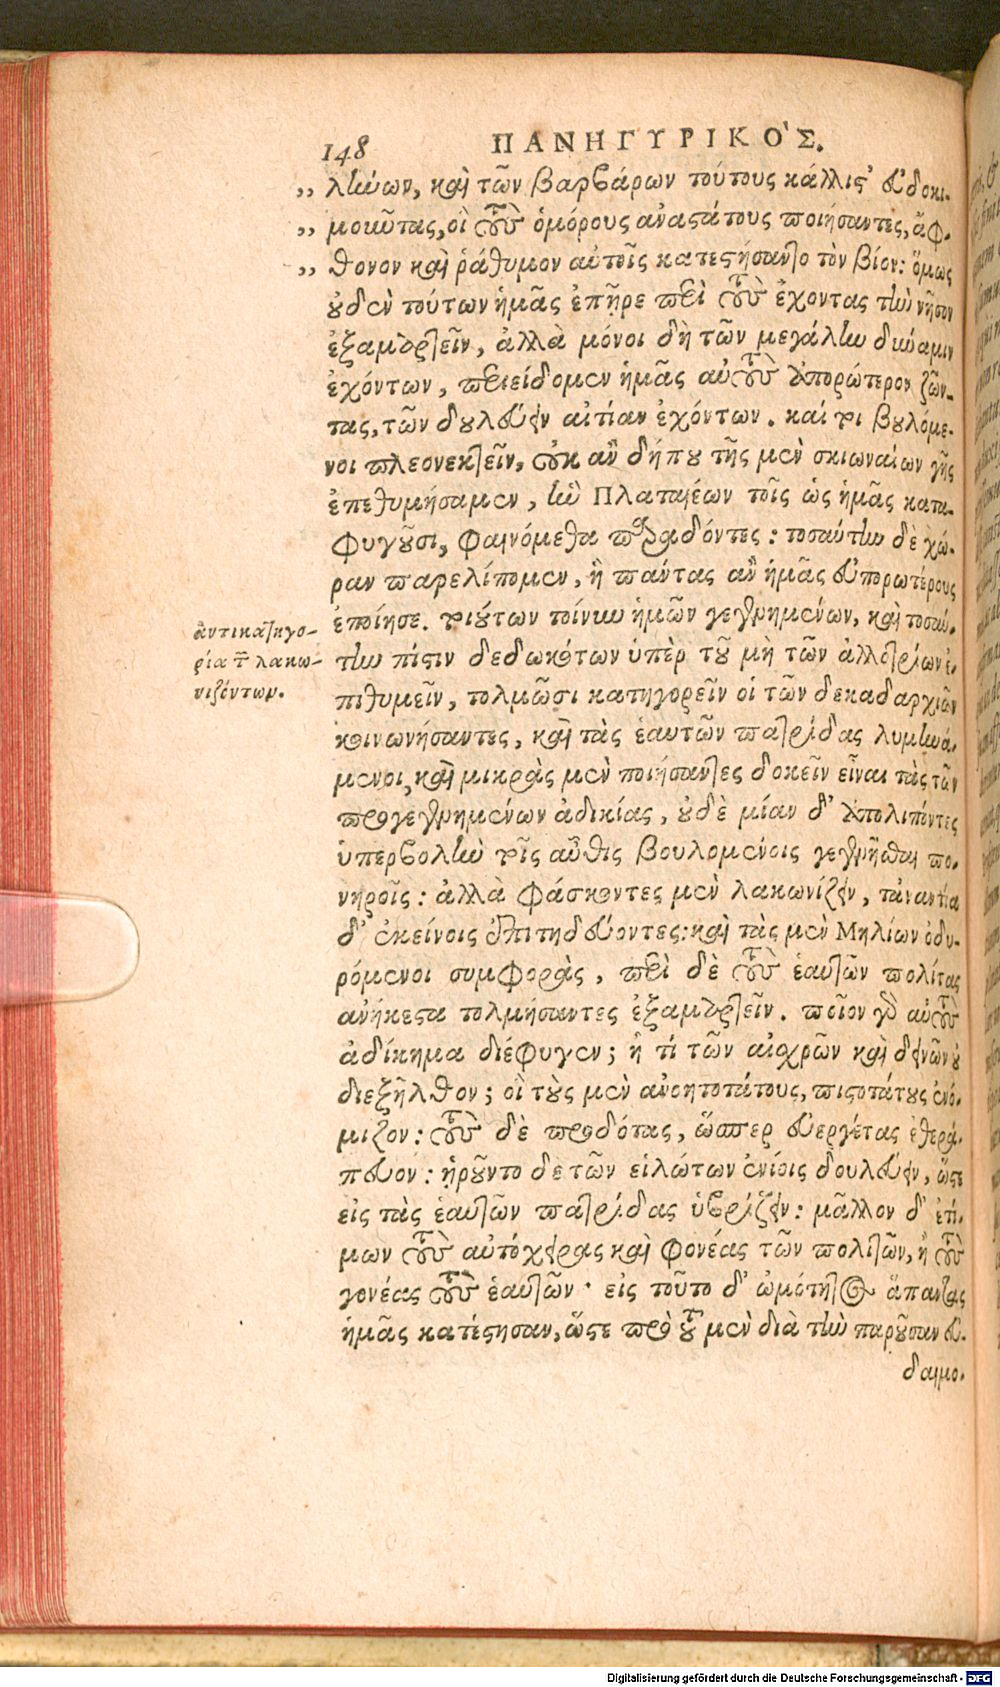 148 ΠΑΝΗΓΥΡΙΚΟ'Σ.
„ λήνων, καὶ τῶν βαρβάρων τούτους κάλλιστ' εὐδοκι-
„ μοιῶτας, οἱ τοὺς ὁμόρους ἀναστάτους ποιήσαντες, ἄφ-
„ θονον καὶ ῥάθυμον αὑτοῖς κατεστήσαντο τὸν βίον: ὅμως
οὐδὲν τούτων ἡμᾶς ἐπῆρε περὶ τοὺς ἔχοντας τὴν νῆσον
ἐξαμαρτεῖν, ἀλλὰ μόνοι δὴ τῶν μεγάλην δύναμιν
ἐχόντων, περιείδομεν ἡμᾶς αὐτοὺς ἀπορώτερον ζῶν-
τας, τῶν δουλεύειν αἰτίαν ἐχόντων. καί τοι βουλόμε-
νοι πλεονεκτεῖν, οὐκ ἂν δήπου τῆς μὲν σκιωναίων γῆς
ἐπεθυμήσαμεν, ἣν Πλαταιέων τοῖς ὡς ἡμᾶς κατα-
φυγοῦσι, φαινόμεθα παραδόντες: τοσαύτην δὲ χώ-
ραν παρελίπομεν, ἣ πάντας ἂν ἡμᾶς εὐπορωτέρους
ἐποίησε. τοιούτων τοίνυν ἡμῶν γεγενημένων, καὶ τοσαύ-
ἀντικατηγο-
ρία τῶν λακω-
νιζόντων.
την πίστιν δεδωκότων ὑπὲρ τοῦ μὴ τῶν ἀλλοτρίων ἐ-
πιθυμεῖν, τολμῶσι κατηγορεῖν οἱ τῶν δεκαδαρχιῶν
κοινωνήσαντες, καὶ τὰς ἑαυτῶν πατρίδας λυμηνά-
μενοι, καὶ μικρὰς μὲν ποιήσαντες δοκεῖν εἶναι τὰς τῶν
προγεγενημένων ἀδικίας, οὐδὲ μίαν δ' ἀπολιπόντες
ὑπερβολὴν τοῖς αὖθις βουλομένοις γεγενῆσθαι πο-
νηροῖς: ἀλλὰ φάσκοντες μὲν λακωνίζειν, τἀναντία
δ' ἐκείνοις ἐπιτηδεύοντες: καὶ τὰς μὲν Μηλίων ὀδυ-
ρόμενοι συμφορὰς, περὶ δὲ τοὺς ἑαυτῶν πολίτας
ἀνήκεστα τολμήσαντες ἐξαμαρτεῖν. ποῖον γὰρ αὐτοὺς
ἀδίκημα διέφυγεν; ἢ τί τῶν αἰσχρῶν καὶ δεινῶν οὐ
διεξῆλθον; οἳ τοὺς μὲν ἀνοητοτάτους, πιστοτάτους ἐνό-
μιζον: τοὺς δὲ προδότας, ὥσπερ εὐεργέτας ἐθερά-
πευον: ᾑροῦντο δὲ τῶν εἱλώτων ἐνίοις δουλεύειν, ὥστε
εἰς τὰς ἑαυτῶν πατρίδας ὑβρίζειν: μᾶλλον δ' ἐτί-
μων τοὺς αὐτόχειρας καὶ φονέας τῶν πολιτῶν, ἢ τοὺς
γονέας τοὺς ἑαυτῶν· εἰς τοῦτο δ' ὠμότητος ἅπαντας
ἡμᾶς κατέστησαν, ὥστε πρὸ τοῦ μὲν διὰ τὴν παροῦσαν εὐ-
δαιμο-
Digitalisierung gefördert durch die Deutsche Forschungsgemeinschaft - DFG